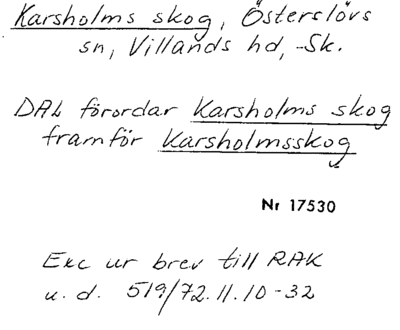 Karsholms skog, Österslövs
sn, Villands hd, Sk.
DAL förordar Karsholms skog
framför Karsholmsskog
Nr 17530
Exc ur brev till RAK
u. d. 519/72.11.10-32